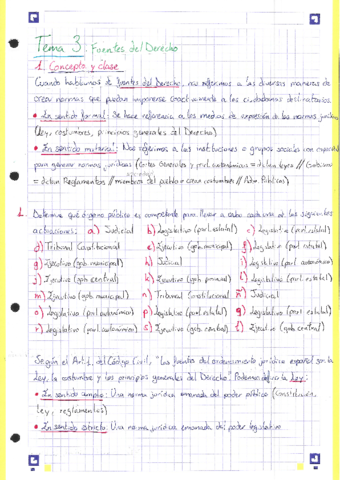 Tema 3: Fuentes del Derecho
1. Concepto y clase
Cuando hablamos de fuentes del Derecho, nos referimos a las diversas maneras de
crear normas que puedan imponerse coactivamente a los ciudadanos destinatarios.
• En sentido formal: Se hace referencia a los medios de expresión de las normas jurídicas
(ley, costumbres, principios generales del Derecho)
• En sentido material: Nos referimos a las instituciones o grupos sociales con capacidad
para generar normas jurídicas (Cortes Generales y parl. autonómicos = dictan leyes // Gobierno
= dictan Reglamentos // miembros del pueblo = crean costumbres // Poderes Públicos)
1. Determine que órgano público es competente para llevar a cabo cada una de las siguientes
actuaciones: a) Judicial b) Legislativo (parl. estatal) c) Legislativo (parl. estatal)
d) Tribunal Constitucional e) Ejecutivo (gob. municipal) f) Legislativo (parl. estatal)
g) Ejecutivo (gob. municipal) h) Judicial i) Legislativo (parl. autonómico)
j) Ejecutivo (gob. central) k) Ejecutivo (gob. provincial) l) Legislativo (parl. estatal)
m) Ejecutivo (gob. municipal) n) Tribunal Constitucional ñ) Judicial
o) Legislativo (parl. autonómico) p) Legislativo (parl. estatal) q) Legislativo (parl. estatal)
r) Legislativo (parl. autonómico) s) Ejecutivo (gob. central) t) Ejecutivo (gob. central)
Según el Art.1, del Código Civil, "Las fuentes del ordenamiento jurídico español son la
Ley, la costumbre y los principios generales del Derecho" Podemos definir la Ley:
• En sentido amplio: Una norma jurídica emanada del poder público (Constitución,
ley, reglamentos)
• En sentido estricto: Una norma jurídica emanada del poder legislativo